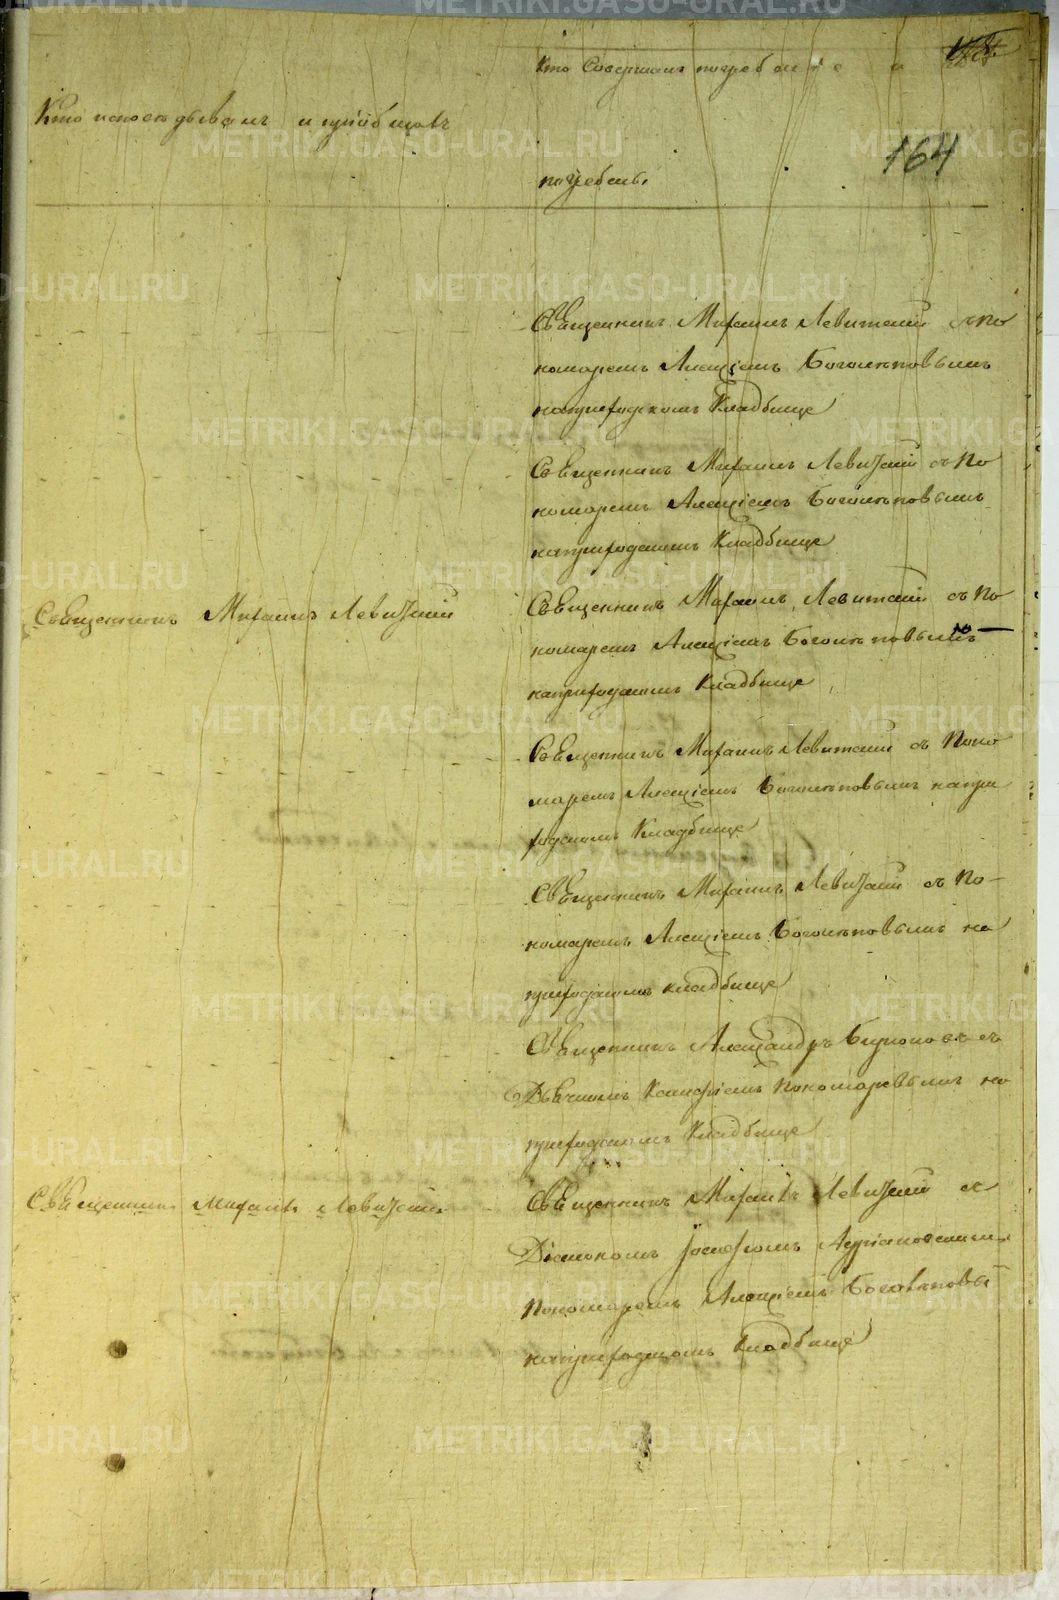 Кто совершал погребение и
164
Кто исповедывал и приобщал
погребены
Священникъ Михаилъ Левитскій съ по
номаремъ Алексіемъ Боголѣповымъ
наприходскомъ Кладбище
Священникъ Михаилъ Левитскій съ По
номаремъ Алексіемъ Боголѣповымъ
наприходскомъ Кладбище
Священникъ Михаилъ Левитскій
Священникъ Михаилъ Левитскій съ По
номаремъ Алексіемъ Боголѣповымъ
наприходскомъ Кладбище
Священникъ Михаилъ Левитскій съ Поно
маремъ Алексіемъ Боголѣповымъ напри
ходскомъ Кладбище
Священникъ Михаилъ Левитскій съ По-
номаремъ Алексіемъ Боголѣповымъ на
приходскомъ кладбище
Священникъ Александръ съ
Дьячкомъ Пономаревымъ на
приходскомъ Кладбище
Священникъ Михаилъ Левитскій
Священникъ Михаилъ Левитскій съ
Діакономъ Іосифомъ
Пономаремъ Алексіемъ Боголѣповы
наприходскомъ Кладбище
METRIKI.GASO-URAL.RU